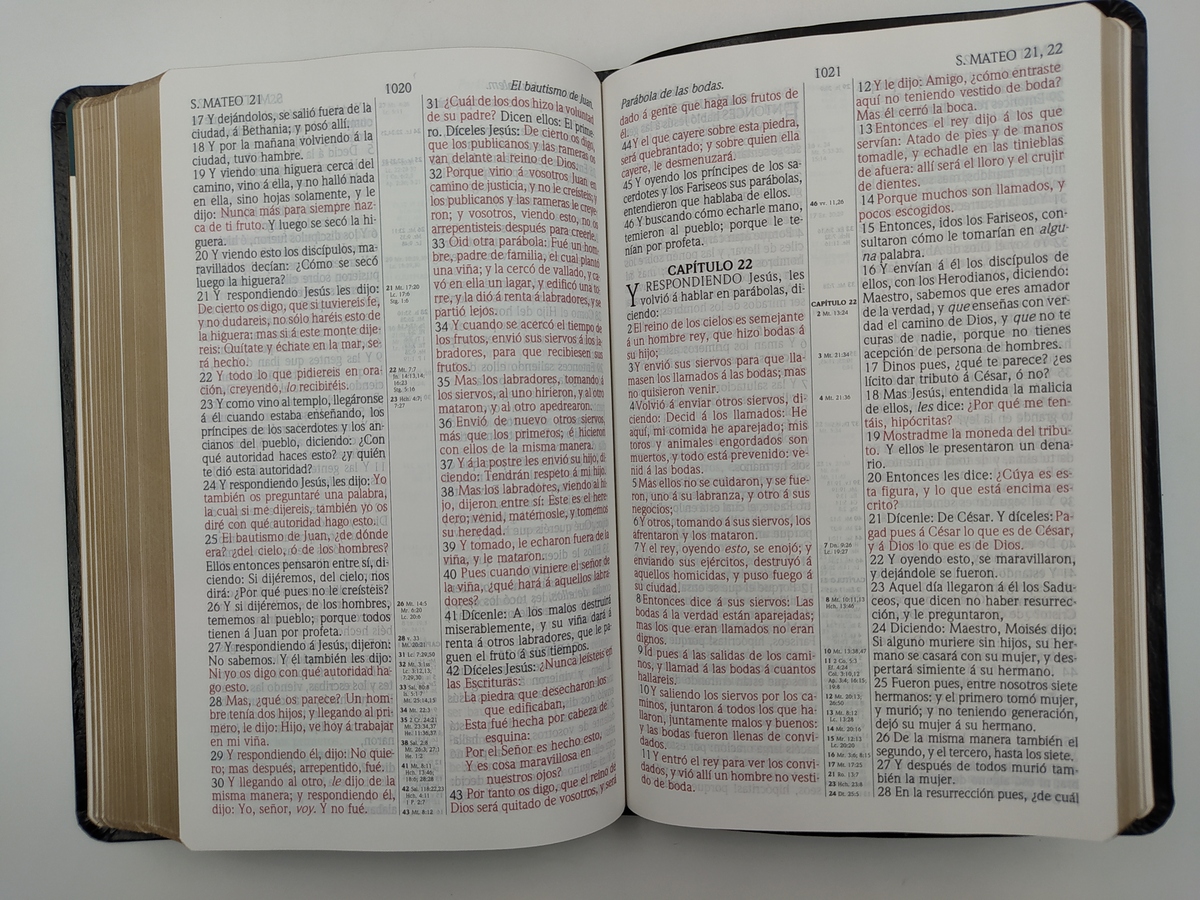 S. MATEO 21
1020
El bautismo de Juan.
17 Y dejándolos, se salió fuera de la
ciudad, á Bethania; y posó allí.
18 Y por la mañana volviendo á la
ciudad, tuvo hambre.
19 Y viendo una higuera cerca del
camino, vino á ella, y no halló nada
en ella, sino hojas solamente, y le
dijo: Nunca más para siempre naz-
ca de ti fruto. Y luego se secó la hi-
guera.
20 Y viendo esto los discípulos, ma-
ravillados decían: ¿Cómo se secó
luego la higuera?
21 Y respondiendo Jesús les dijo:
De cierto os digo, que si tuviereis fe,
y no dudareis, no sólo haréis esto de
la higuera: mas si á este monte dije-
reis: Quítate y échate en la mar, se-
rá hecho.
22 Y todo lo que pidiereis en ora-
ción, creyendo, lo recibiréis.
23 Y como vino al templo, llegáronse
á él cuando estaba enseñando, los
príncipes de los sacerdotes y los an-
cianos del pueblo, diciendo: ¿Con
qué autoridad haces esto? ¿y quién
te dió esta autoridad?
24 Y respondiendo Jesús, les dijo: Yo
también os preguntaré una palabra,
la cual si me dijereis, también yo os
diré con qué autoridad hago esto.
25 El bautismo de Juan, ¿de dónde
era? ¿del cielo, ó de los hombres?
Ellos entonces pensaron entre sí, di-
ciendo: Si dijéremos, del cielo, nos
dirá: ¿Por qué pues no le creísteis?
26 Y si dijéremos, de los hombres,
tememos al pueblo; porque todos
tienen á Juan por profeta.
27 Y respondiendo á Jesús, dijeron:
No sabemos. Y él también les dijo:
Ni yo os digo con qué autoridad ha-
go esto.
28 Mas, ¿qué os parece? Un hom-
bre tenía dos hijos, y llegando al pri-
mero, le dijo: Hijo, ve hoy á trabajar
en mi viña.
29 Y respondiendo él, dijo: No quie-
ro; mas después, arrepentido, fué.
30 Y llegando al otro, le dijo de la
misma manera; y respondiendo él,
dijo: Yo, señor, voy. Y no fué.
21 Mt. 17:20
Lc. 17:6
Stg. 1:6
22 Mt. 7:7
Jn. 14:13,14;
16:23
Stg. 5:16
23 Hch. 4:7;
7:27
26 Mt. 14:5
Mr. 6:20
Lc. 20:6
28 v. 33
Mt. 20:1
31 Lc. 7:29,50
32 Mt. 3:1ss
Lc. 3:12,13;
7:29,30
33 Sal. 80:8
Is. 5:1-7
Mt. 25:14,15
34 Mt. 22:3
35 2 Cr. 24:21
Mt. 23:34,37
He. 11:36,37
38 Sal. 2:8
Mt. 26:3; 27:1
He. 1:2
41 Mt. 8:11
Hch. 13:46;
18:6; 28:28
42 Sal. 118:22,23
Hch. 4:11
1 P. 2:7
43 Mt. 8:12
31 ¿Cuál de los dos hizo la voluntad
de su padre? Dicen ellos: El prime-
ro. Díceles Jesús: De cierto os digo,
que los publicanos y las rameras os
van delante al reino de Dios.
32 Porque vino á vosotros Juan en
camino de justicia, y no le creísteis; y
los publicanos y las rameras le creye-
ron; y vosotros, viendo esto, no os
arrepentisteis después para creerle.
33 Oíd otra parábola: Fué un hom-
bre, padre de familia, el cual plantó
una viña; y la cercó de vallado, y ca-
vó en ella un lagar, y edificó una to-
rre, y la dió á renta á labradores, y se
partió lejos.
34 Y cuando se acercó el tiempo de
los frutos, envió sus siervos á los la-
bradores, para que recibiesen sus
frutos.
35 Mas los labradores, tomando á
los siervos, al uno hirieron, y al otro
mataron, y al otro apedrearon.
36 Envió de nuevo otros siervos,
más que los primeros; é hicieron
con ellos de la misma manera.
37 Y á la postre les envió su hijo, di-
ciendo: Tendrán respeto á mi hijo.
38 Mas los labradores, viendo al hi-
jo, dijeron entre sí: Este es el here-
dero; venid, matémosle, y tomemos
su heredad.
39 Y tomado, le echaron fuera de la
viña, y le mataron.
40 Pues cuando viniere el señor de
la viña, ¿qué hará á aquellos labra-
dores?
41 Dícenle: A los malos destruirá
miserablemente, y su viña dará á
á renta á otros labradores, que le pa-
guen el fruto á sus tiempos.
42 Díceles Jesús: ¿Nunca leísteis en
las Escrituras:
La piedra que desecharon los
que edificaban,
Esta fué hecha por cabeza de
esquina:
Por el Señor es hecho esto,
Y es cosa maravillosa en
nuestros ojos?
43 Por tanto os digo, que el reino de
Dios será quitado de vosotros, y será
Parábola de las bodas.
1021
S. MATEO 21, 22
dado á gente que haga los frutos de
él.
44 Y el que cayere sobre esta piedra,
será quebrantado; y sobre quien ella
cayere, le desmenuzará.
45 Y oyendo los príncipes de los sa-
cerdotes y los Fariseos sus parábolas,
entendieron que hablaba de ellos.
46 Y buscando cómo echarle mano,
temieron al pueblo; porque le te-
nían por profeta.
CAPÍTULO 22
Y RESPONDIENDO Jesús, les
volvió á hablar en parábolas, di-
ciendo:
2 El reino de los cielos es semejante
á un hombre rey, que hizo bodas á
su hijo;
3 Y envió sus siervos para que lla-
masen los llamados á las bodas; mas
no quisieron venir.
4 Volvió á enviar otros siervos, di-
ciendo: Decid á los llamados: He
aquí, mi comida he aparejado; mis
toros y animales engordados son
muertos, y todo está prevenido: ve-
nid á las bodas.
5 Mas ellos no se cuidaron, y se fue-
ron, uno á su labranza, y otro á sus
negocios;
6 Y otros, tomando á sus siervos, los
afrentaron y los mataron.
7 Y el rey, oyendo esto, se enojó; y
enviando sus ejércitos, destruyó á
aquellos homicidas, y puso fuego á
su ciudad.
8 Entonces dice á sus siervos: Las
bodas á la verdad están aparejadas;
mas los que eran llamados no eran
dignos.
9 Id pues á las salidas de los cami-
nos, y llamad á las bodas á cuantos
hallareis.
10 Y saliendo los siervos por los ca-
minos, juntaron á todos los que ha-
llaron, juntamente malos y buenos:
y las bodas fueron llenas de convi-
dados.
11 Y entró el rey para ver los convi-
dados, y vió allí un hombre no vesti-
do de boda.
46 vv. 11,26
CAPÍTULO 22
2 Mt. 13:24
3 Mt. 21:34
4 Mt. 21:36
7 Dn. 9:26
Lc. 19:27
8 Mt. 10:11,13
Hch. 13:46
10 Mt. 13:38,47
11 2 Co. 5:3
Ef. 4:24
Col. 3:10,12
Ap. 3:4; 16:15;
19:8
12 Mt. 20:13;
26:50
13 Mt. 8:12
Lc. 13:28
14 Mt. 20:16
15 Mr. 12:13
Lc. 20:20
16 Mr. 3:6; 8:15
17 Mt. 17:25
21 Ro. 13:7
23 Hch. 23:8
24 Dt. 25:5
12 Y le dijo: Amigo, ¿cómo entraste
aquí no teniendo vestido de boda?
Mas él cerró la boca.
13 Entonces el rey dijo á los que
servían: Atado de pies y de manos
tomadle, y echadle en las tinieblas
de afuera: allí será el lloro y el crujir
de dientes.
14 Porque muchos son llamados, y
pocos escogidos.
15 Entonces, idos los Fariseos, con-
sultaron cómo le tomarían en algu-
na palabra.
16 Y envían á él los discípulos de
ellos, con los Herodianos, diciendo:
Maestro, sabemos que eres amador
de la verdad, y que enseñas con ver-
dad el camino de Dios, y que no te
curas de nadie, porque no tienes
acepción de persona de hombres.
17 Dinos pues, ¿qué te parece? ¿es
lícito dar tributo á César, ó no?
18 Mas Jesús, entendida la malicia
de ellos, les dice: ¿Por qué me ten-
táis, hipócritas?
19 Mostradme la moneda del tribu-
to. Y ellos le presentaron un dena-
rio.
20 Entonces les dice: ¿Cúya es es-
ta figura, y lo que está encima es-
crito?
21 Dícenle: De César. Y díceles: Pa-
gad pues á César lo que es de César,
y á Dios lo que es de Dios.
22 Y oyendo esto, se maravillaron,
y dejándole se fueron.
23 Aquel día llegaron á él los Sadu-
ceos, que dicen no haber resurrec-
ción, y le preguntaron,
24 Diciendo: Maestro, Moisés dijo:
Si alguno muriere sin hijos, su her-
mano se casará con su mujer, y des-
pertará simiente á su hermano.
25 Fueron pues, entre nosotros siete
hermanos: y el primero tomó mujer,
y murió; y no teniendo generación,
dejó su mujer á su hermano.
26 De la misma manera también el
segundo, y el tercero, hasta los siete.
27 Y después de todos murió tam-
bién la mujer.
28 En la resurrección pues, ¿de cuál